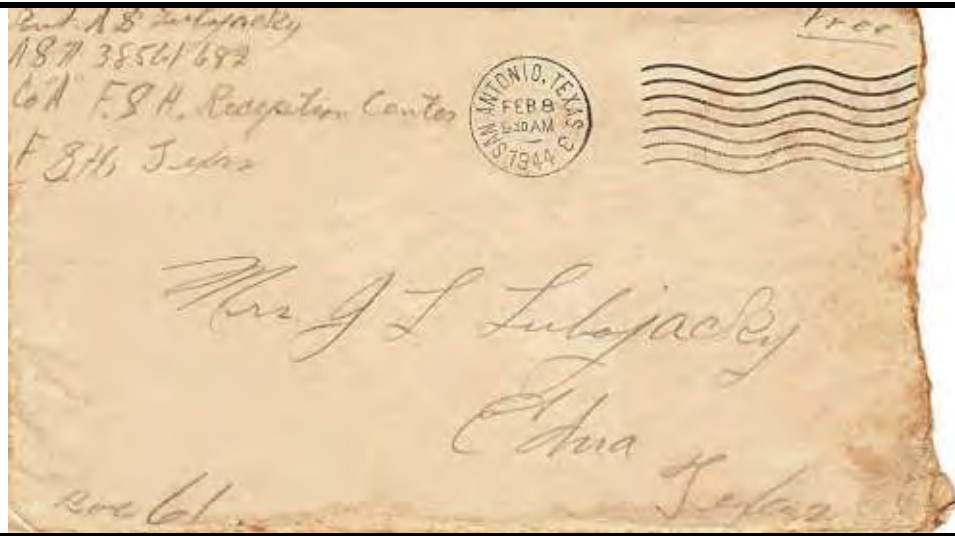 Pvt. A B Lubojacky
ASN 38561682
Co "A" F.S.H. Reception Center
F S H, Texas
Free
SAN ANTONIO, TEXAS
FEB 8
1944
Mrs J L Lubojacky
Edna
Texas
Box 61